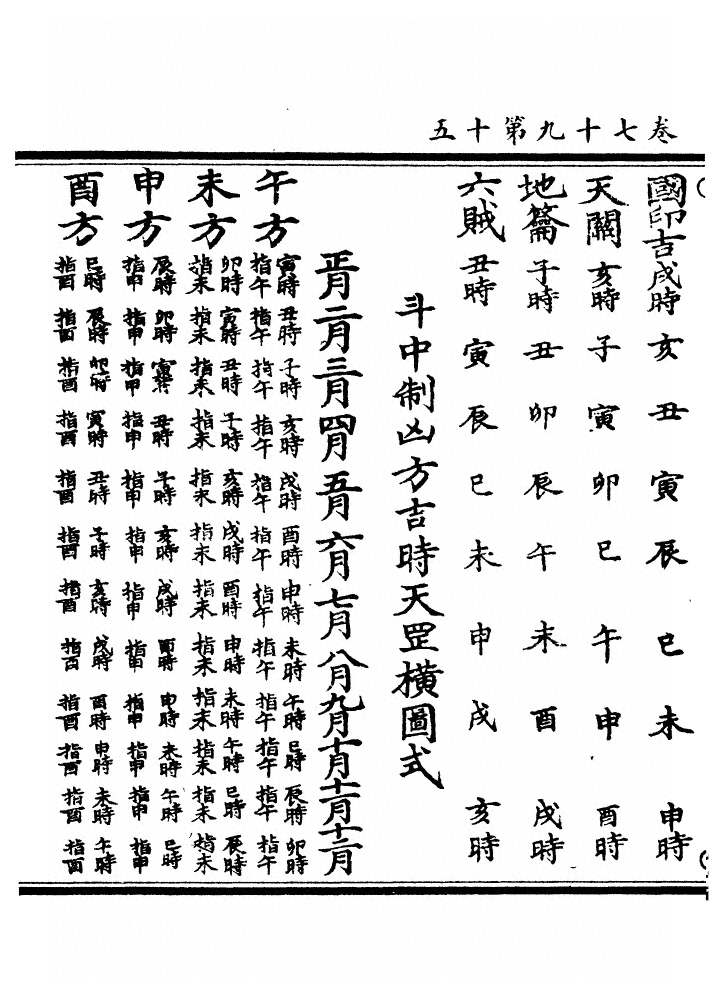 卷七十九第十五
國印吉戌時 亥 丑 寅 辰 巳 未 申時
天關亥時 子 寅 卯 巳 午 申 酉時
地籥子時 丑 卯 辰 午 未 酉 戌時
六賊丑時 寅 辰 巳 未 申 戌 亥時
斗中制凶方吉時天罡橫圖式
正月 二月 三月 四月 五月 六月 七月 八月 九月 十月 十一月 十二月
午方 寅時指午 丑時指午 子時指午 亥時指午 戌時指午 酉時指午 申時指午 未時指午 午時指午 巳時指午 辰時指午 卯時指午
未方 卯時指未 寅時指未 丑時指未 子時指未 亥時指未 戌時指未 酉時指未 申時指未 未時指未 午時指未 巳時指未 辰時指未
申方 辰時指申 卯時指申 寅時指申 丑時指申 子時指申 亥時指申 戌時指申 酉時指申 申時指申 未時指申 午時指申 巳時指申
酉方 巳時指酉 辰時指酉 卯時指酉 寅時指酉 丑時指酉 子時指酉 亥時指酉 戌時指酉 酉時指酉 申時指酉 未時指酉 午時指酉